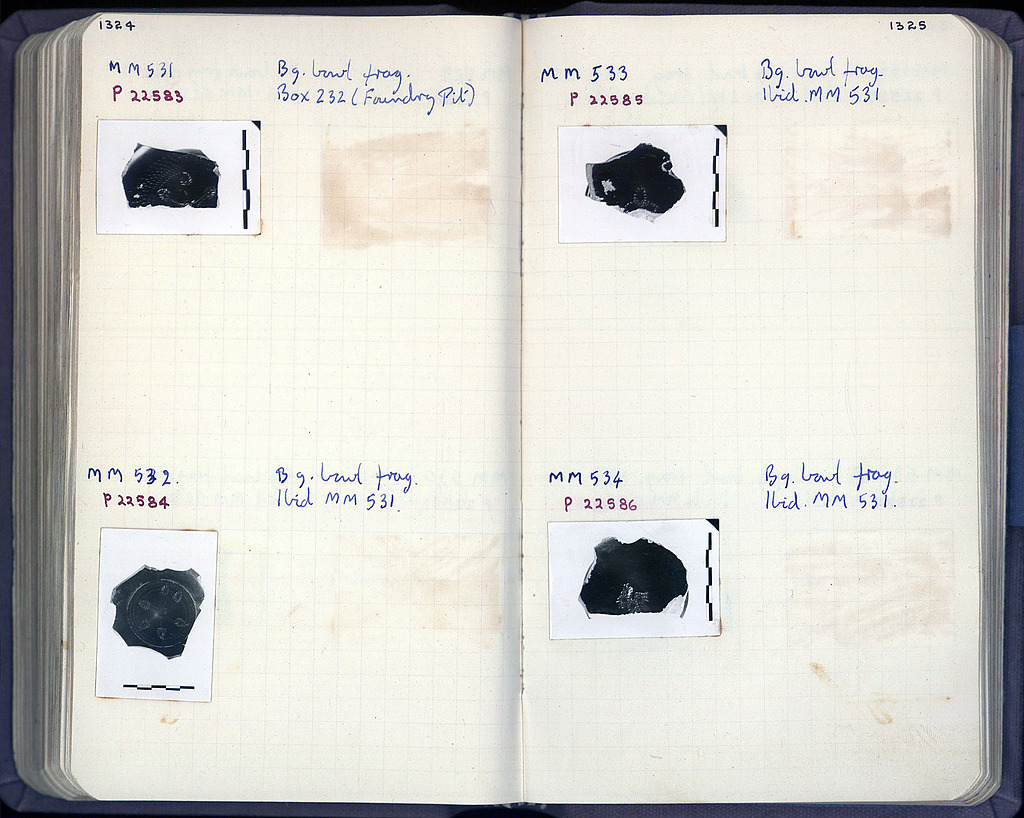 1324
MM 531
P 22583
Bg. bowl frag.
Box 232 (Foundry Pit)
MM 532.
P 22584
Bg. bowl frag.
Ibid MM 531.
1325
MM 533
P 22585
Bg. bowl frag.
Ibid. MM 531.
MM 534
P 22586
Bg. bowl frag.
Ibid. MM 531.